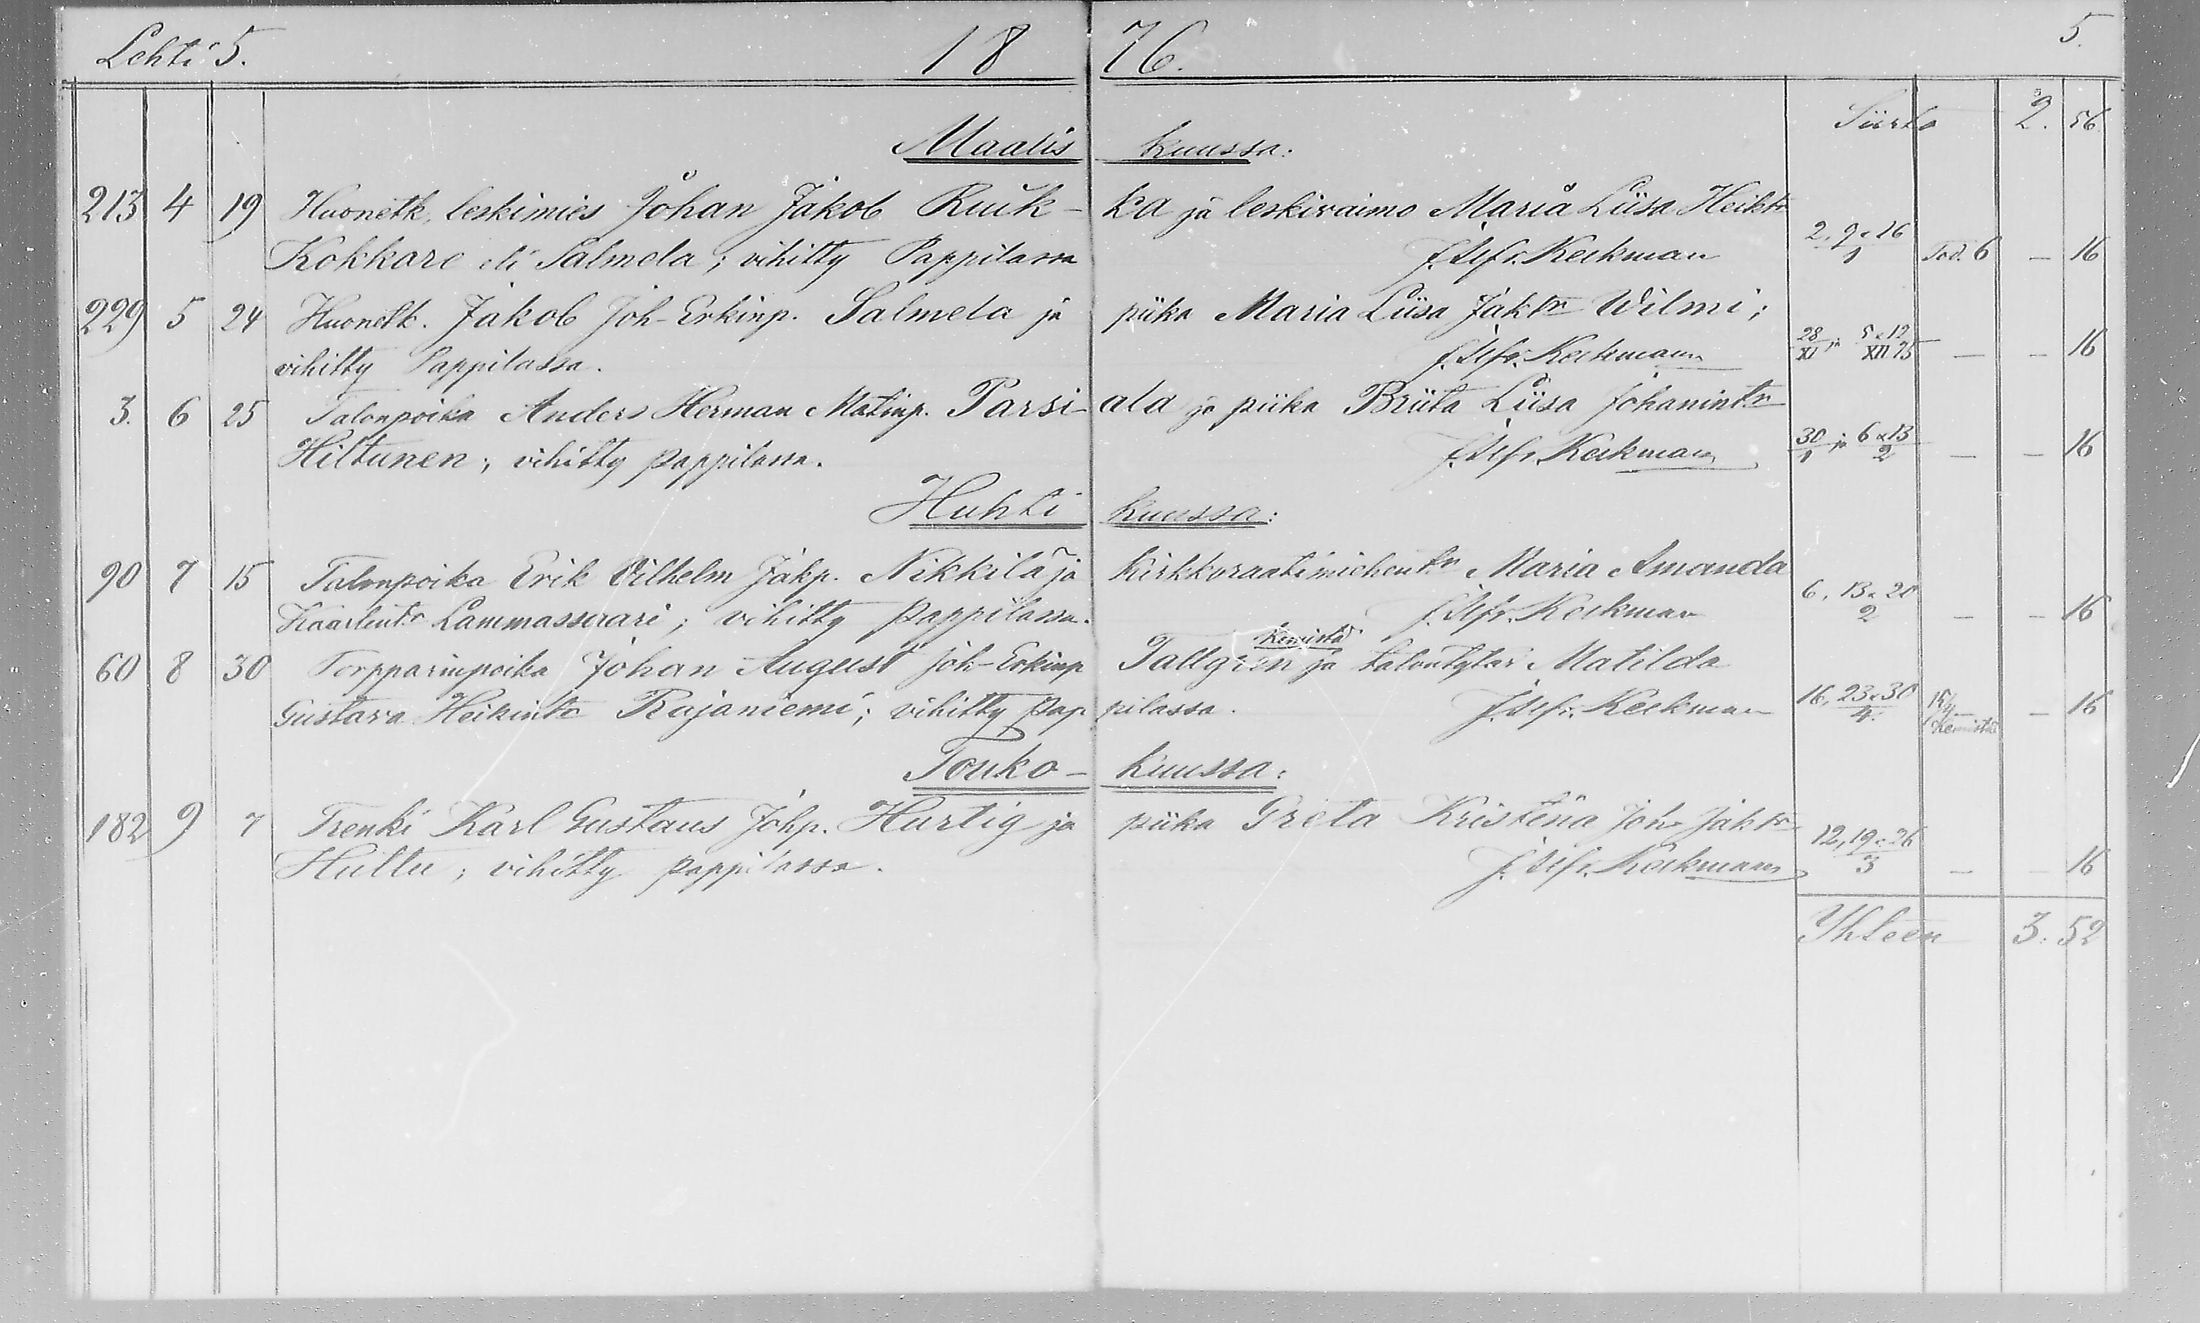 Lehti 5. 18 76. 5.
Siirto 2. 56.
Maalis kuussa:
213 4 19 Huonetk. leskimies Johan Jakob Ruik- ka ja leskivaimo Maria Liisa Heiktr
Kokkare eli Salmela; vihitty Pappilassa J. Alfr. Keckman 2, 9 & 16/1 Tod. 6 - 16
229 5 24 Huonetk. Jakob Joh-Erkinp. Salmela ja piika Maria Liisa Jaktr Wilmi;
vihitty Pappilassa. J. Alfr. Keckman 28/XI ja 5 & 12/XII 75 - - 16
3. 6 25 Talonpoika Anders Herman Matinp. Parsi- ala ja piika Briita Liisa Johanintr
Hiltunen; vihitty pappilassa. J. Alfr. Keckman 30/1 ja 6 & 13/2 - - 16
Huhti kuussa:
90 7 15 Talonpoika Erik Vilhelm Jakp. Nikkilä ja kirkkoraatimiehentr Maria Amanda
Kaarlintr Lammassaari; vihitty pappilassa. J. Alfr. Keckman 6, 13 & 20/2 - - 16
Kemistä
60 8 30 Torpparinpoika Johan August Joh-Erkinp Tallgren ja talontytär Matilda
Gustava Heikintr Rajaniemi; vihitty pap pilassa. J. Alfr. Keckman 16, 23 & 30/4. 15/4 Kemistä - 16
Touko- kuussa:
182 9 7 Trenki Karl Gustaus Johp. Hurtig ja piika Greta Kristina Joh. Jaktr
Huttu; vihitty pappilassa. J. Alfr. Keckman 12, 19 & 26/3 - - 16
Yhteen 3. 52